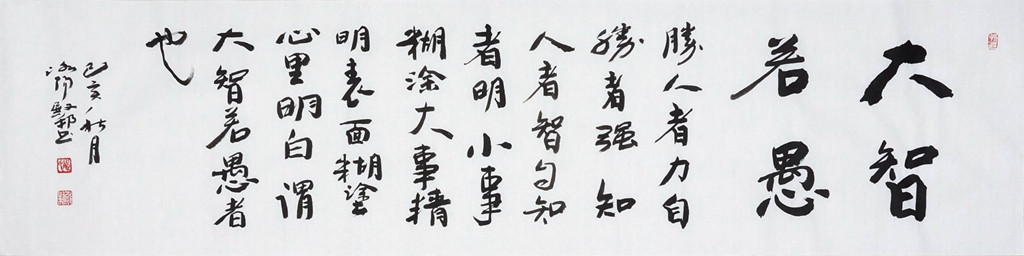 大智
若愚
勝人者力自
勝者强知
人者智自知
者明小事
糊涂大事精
明表面糊塗
心里明白谓
大智若愚者
也
己亥秋月
洛阳